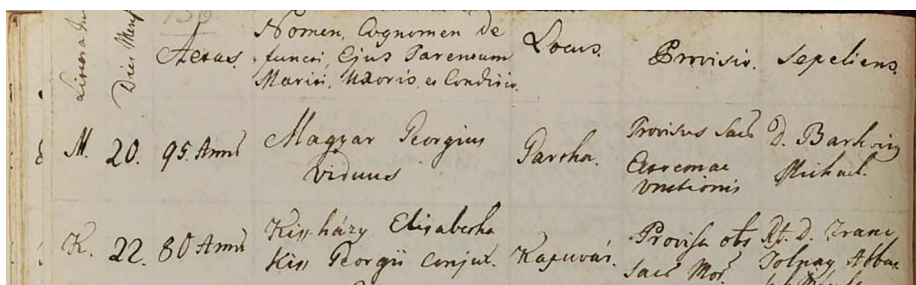 Dies Mens
Aetas.
Nomen, Cognomen de
functi, Ejus Parentum
Mariti, Uxoris, et Conditio.
Locus.
Provisio.
Sepeliens.
M.
20.
95. Annor
Magyar Georgius
viduus
Gartha.
Provisus Sacr
Extremae
Unctionis
D. Barkovig
Michael.
K.
22.
80 Annor
Kissházy Elisabetha
Kiss Georgii conjux.
Kapuvár.
Provisa ots
Sacr Mor.
Rt. D. Franc
Tolnay Abbas